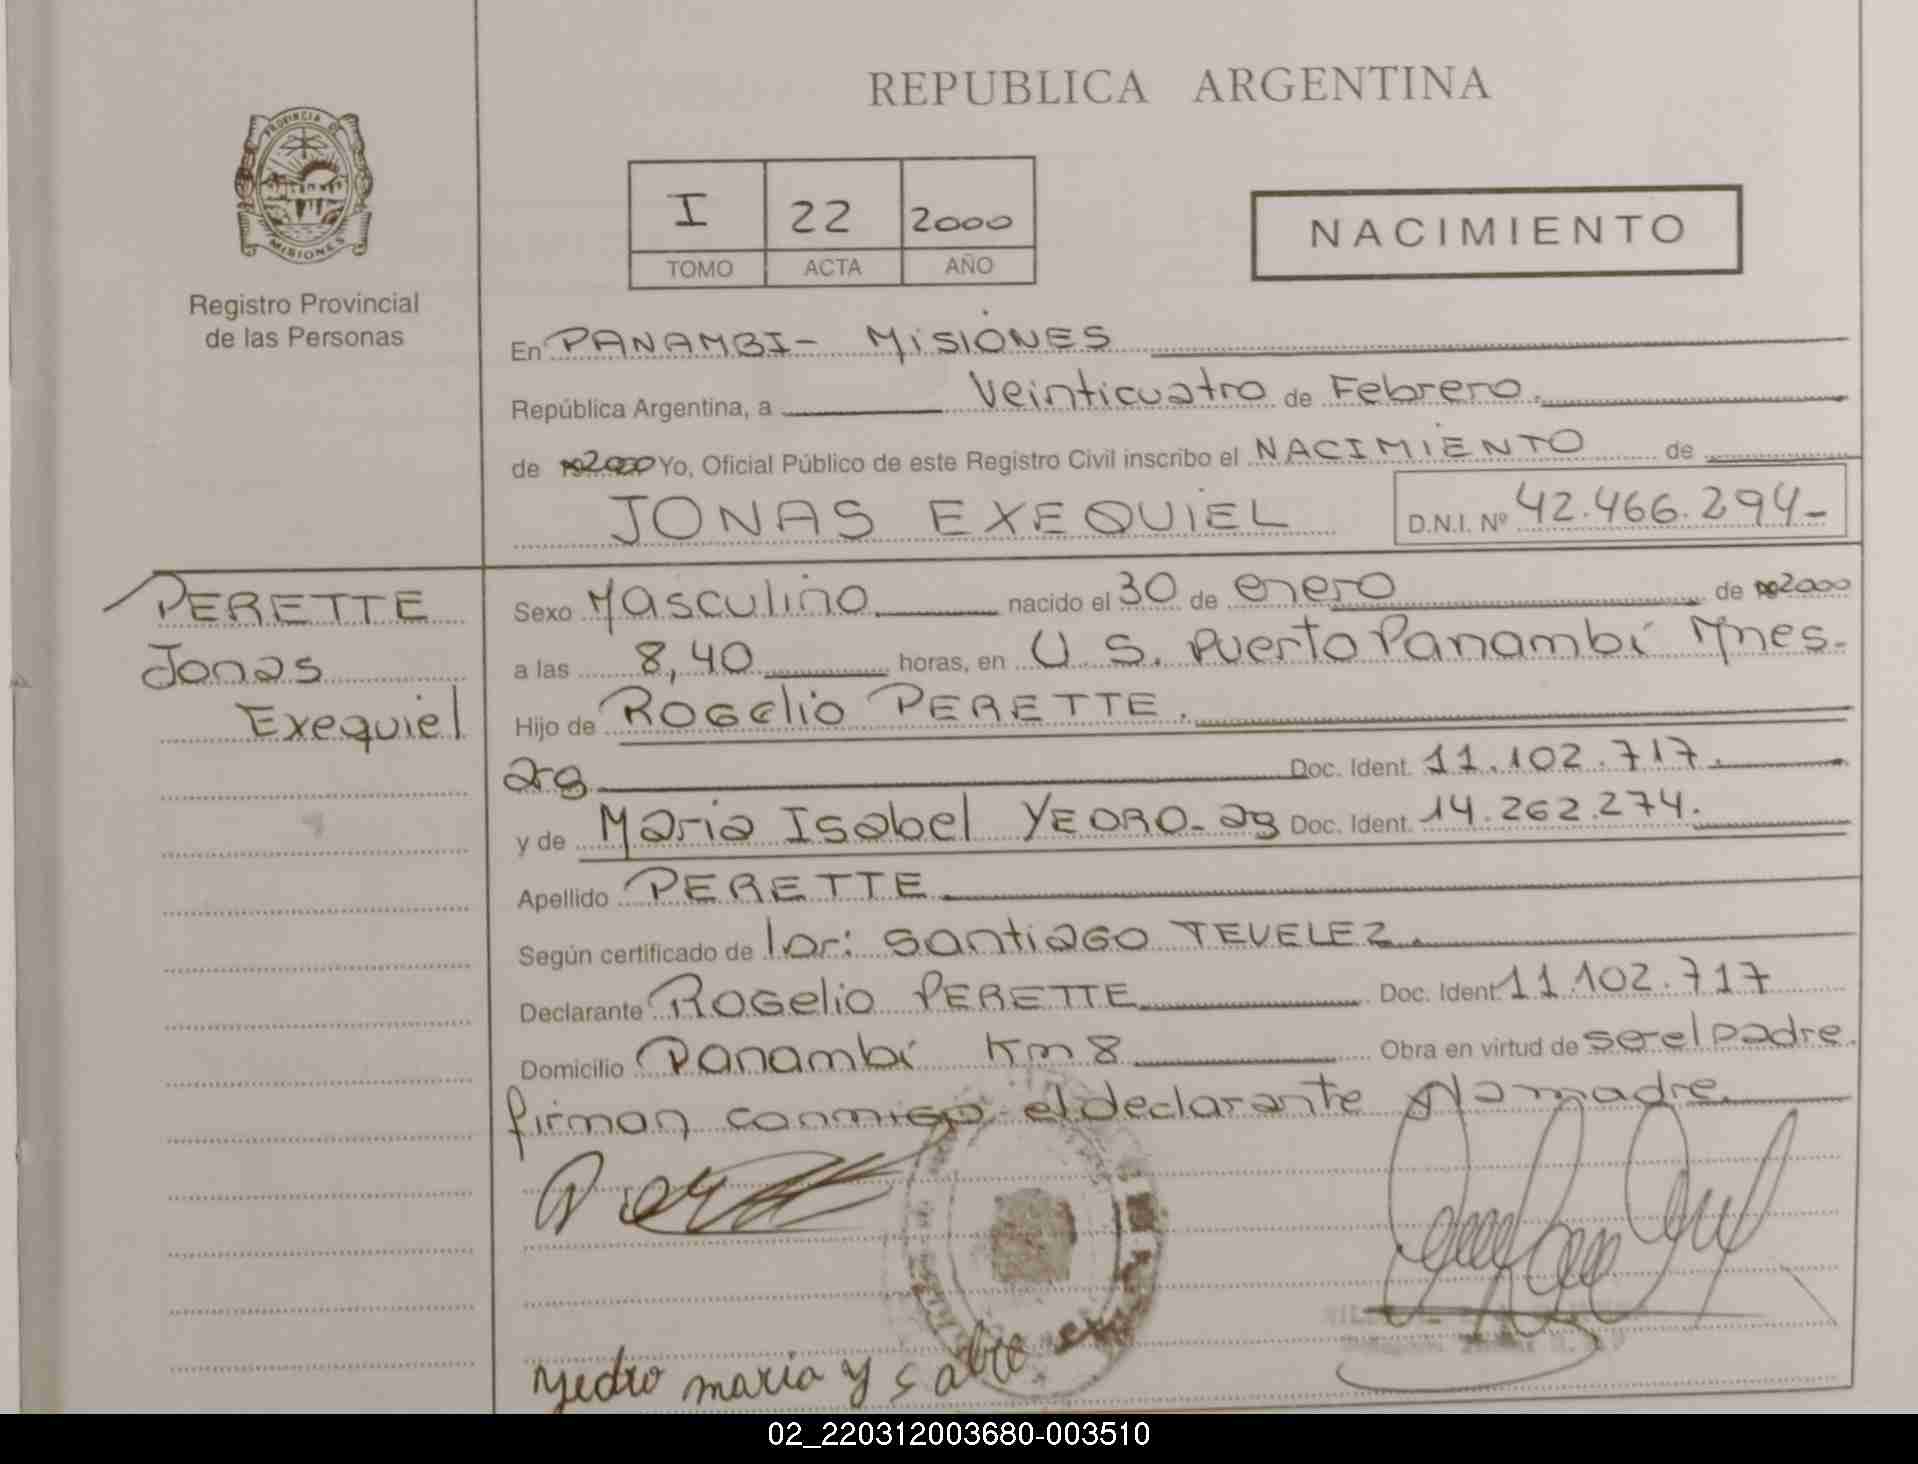 REPUBLICA ARGENTINA
PROVINCIA DE
MISIONES
Registro Provincial
de las Personas
I 22 2000
TOMO ACTA AÑO
NACIMIENTO
En PANAMBI- MISIONES
República Argentina, a Veinticuatro de Febrero.
de 2000 Yo, Oficial Público de este Registro Civil inscribo el NACIMIENTO de
JONAS EXEQUIEL D.N.I. Nº 42.466.294-
PERETTE
Jonas
Exequiel
Sexo Masculino nacido el 30 de enero de 2000
a las 8,40 horas, en U S. Puerto Panambí Mnes.
Hijo de ROGelio PERETTE.
arg Doc. Ident. 11.102.717.
y de Maria Isabel YEDRO- ag Doc. Ident. 14.262.274.
Apellido PERETTE
Según certificado de Santiago TEVELEZ.
Declarante ROGelio PERETTE Doc. Ident. 11.102.717
Domicilio Panambí Km 8 Obra en virtud de ser el padre.
firman conmigo el declarante y la madre.
yedro maria y sabe
02_220312003680-003510